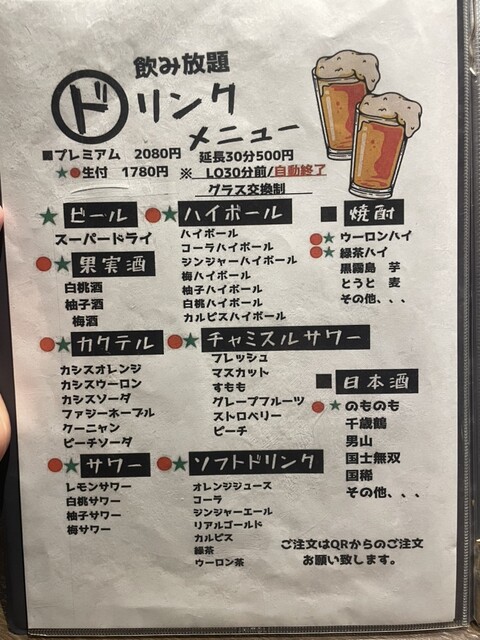 飲み放題
ドリンク
メニュー
■プレミアム 2080円 延長30分500円
★●生付 1780円 ※ LO30分前/自動終了
グラス交換制
★ビール
スーパードライ
●★果実酒
白桃酒
柚子酒
梅酒
●★カクテル
カシスオレンジ
カシスウーロン
カシスソーダ
ファジーネーブル
クーニャン
ピーチソーダ
●★サワー
レモンサワー
白桃サワー
柚子サワー
梅サワー
●★ハイボール
ハイボール
コーラハイボール
ジンジャーハイボール
梅ハイボール
柚子ハイボール
白桃ハイボール
カルピスハイボール
●★チャミスルサワー
フレッシュ
マスカット
すもも
グレープフルーツ
ストロベリー
ピーチ
●★ソフトドリンク
オレンジジュース
コーラ
ジンジャーエール
リアルゴールド
カルピス
緑茶
ウーロン茶
■焼酎
●★ウーロンハイ
●★緑茶ハイ
黒霧島 芋
とうと 麦
その他、、、
■日本酒
●★のものも
千歳鶴
男山
国士無双
国稀
その他、、、
ご注文はQRからのご注文
お願い致します。